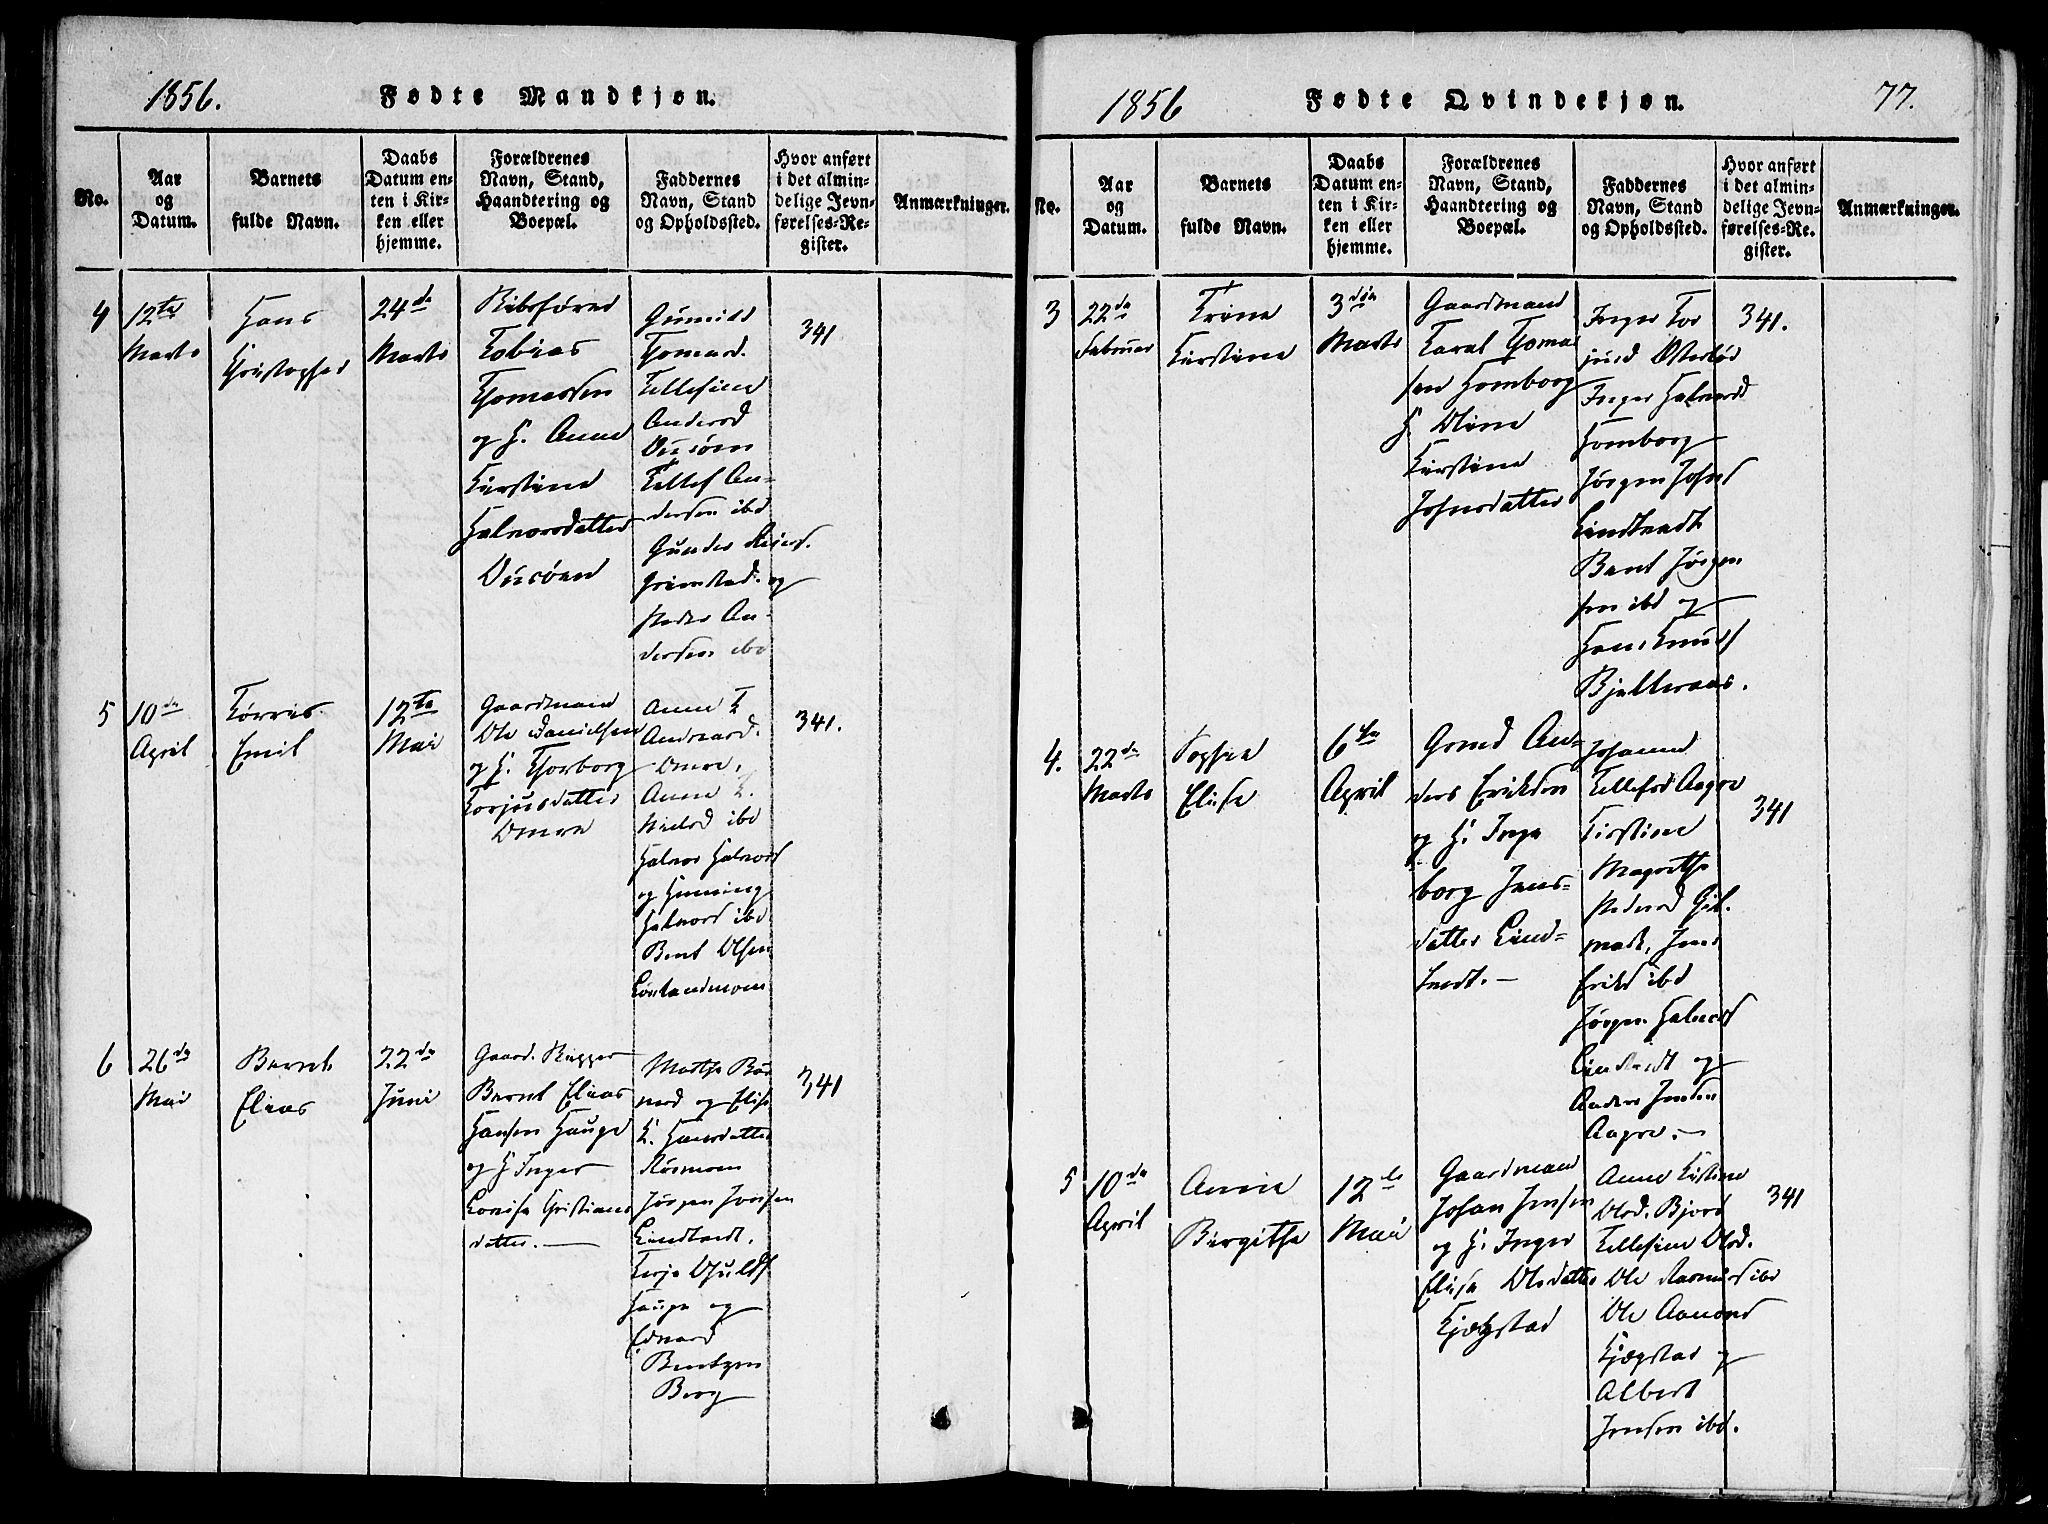 1856.
Fødte Mandkjøn.
No.
Aar
og
Datum.
Barnets
fulde Navn.
Daabs
Datum en-
ten i Kir-
ken eller
hjemme.
Forældrenes
Navn, Stand,
Haandtering og
Boepæl.
Faddernes
Navn, Stand
og Opholdssted.
Hvor anført
i det almin-
delige Jevn-
førelses-Re-
gister.
Anmærkninger.
4
12te
Marts
Hans
24de
Marts
Tobias
Thomassen
og H. Anne
Kirstine
Halvorsdatter
Gunild
Tellefsine
Andersd
Tellef An-
dersen ibd
Gunder
Grimstad. og
Peder An-
dersen ibd
341
5
10de
April
Tørris
Emil
12te
Mai
Gaardmand
Ole Danielsen
og H. Thorborg
Torjusdatter
Omre
Anne K
Omre,
Anne K.
Nielsd ibd
Halvor Halvors
og Henning
Halvors ibd
Bent Olsen
341.
6
26de
Mai
Bernt
Elias
22de
Juni
Bernt Elias
Hansen Hauge
og H Inger
Lovise Christians
datter.
og Elise
K. Hansdatter
Rosmom
Jørgen
Lindtvedt.
Terje
Hauge og
Edvard
Bentzen
Berg
341
1856
Fødte Qvindekjøn.
77.
No.
Aar
og
Datum.
Barnets
fulde Navn.
Daabs
Datum en-
ten i Kir-
ken eller
hjemme.
Forældrenes
Navn, Stand,
Haandtering og
Boepæl.
Faddernes
Navn, Stand
og Opholdssted.
Hvor anført
i det almin-
delige Jevn-
førelses-Re-
gister.
Anmærkninger.
3
22de
Februar
Trine
Kirstine
3die
Marts
Gaardmand
Taral Thomas
sen Homborg
H. Oline
Kirstine
Johnsdatter
Inger Tor
Inger Halvorsd
Homborg
Jørgen Johns
Lindtvedt
Bent Jørgen
sen ibd og
Hans Knuds
Bjelleraas.
341.
4.
22de
Marts
Sophie
Elise
6te
April
Grmd An-
ders Eriksen
og H. Inge
borg Jens-
datter Lind-
tvedt.
Johanne
Tellefsd Aagre
Kirstine
Magrethe
Pedersd
Jens
Eriks ibd
Jørgen Halvors
Lindtvedt og
Anders Jensen
Aagre.
341
5
10de
April
Anne
Birgithe
12te
Mai
Gaardmand
Johan Jensen
og H. Inger
Elise Olsdatter
Kjægstad
Anne Kirstine
Olsd.
Tellefine Olsd.
Ole Rasmus ibd
Ole
Kjægstad og
Albert
Jensen ibd.
341